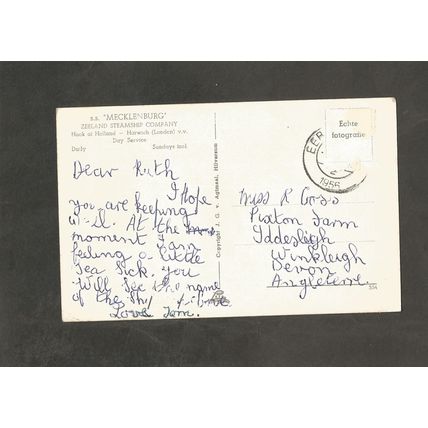 s.s. "MECKLENBURG"
ZEELAND STEAMSHIP COMPANY
Hook of Holland – Harwich (London) v.v.
Day Service
Daily Sundays incl.
Dear Ruth
I Hope
you are keeping
well. At the
moment I am
feeling a little
Sea Sick. you
will see the name
of the Ship
Love Tom.
Copyright J. G. v. Agtmaal, Hilversum
Echte
fotografie
EER
1955
Miss R Goss
Pixton Farm
Iddesleigh
Winkleigh
Devon
Angleterre